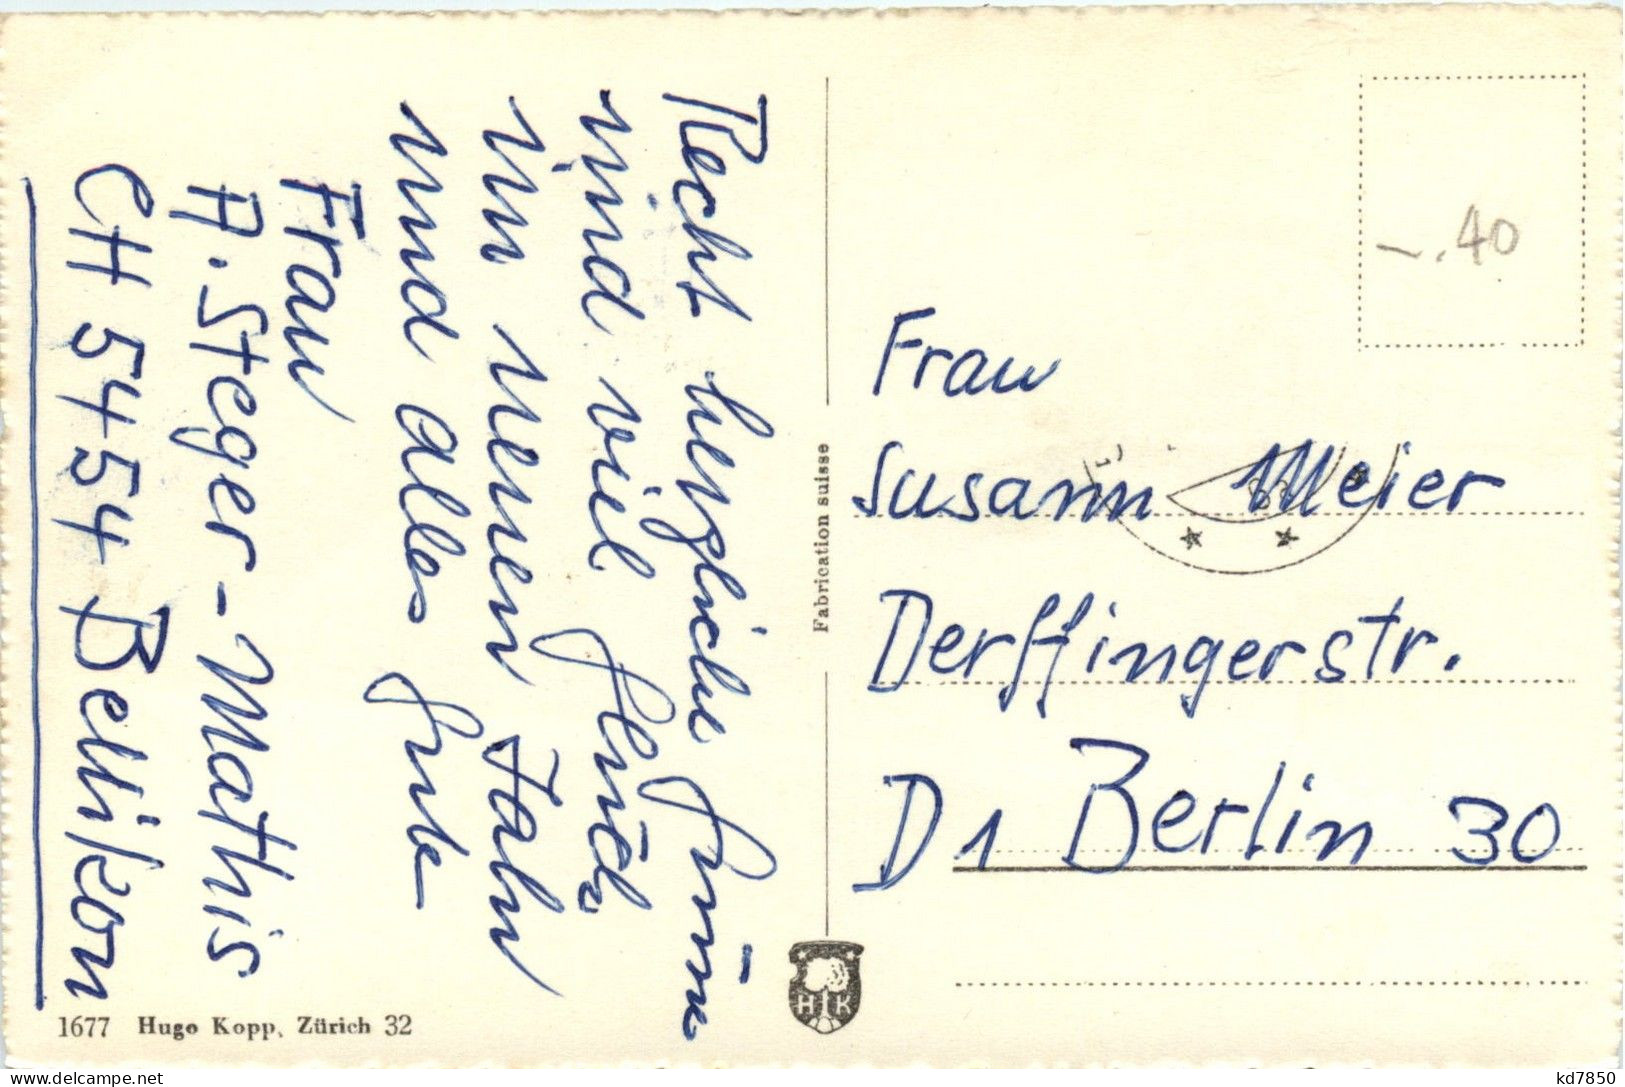 Recht herzliche Grüsse
und viel Glück
im neuen Jahr
und alles Gute
Frau
A. Steger-Mathis
CH 5454 Bellikon
1677 Hugo Kopp, Zürich 32
Fabrication suisse
H K
-.40
Frau
Susann Meier
Derffingerstr.
D 1 Berlin 30
delcampe.net
kd7850